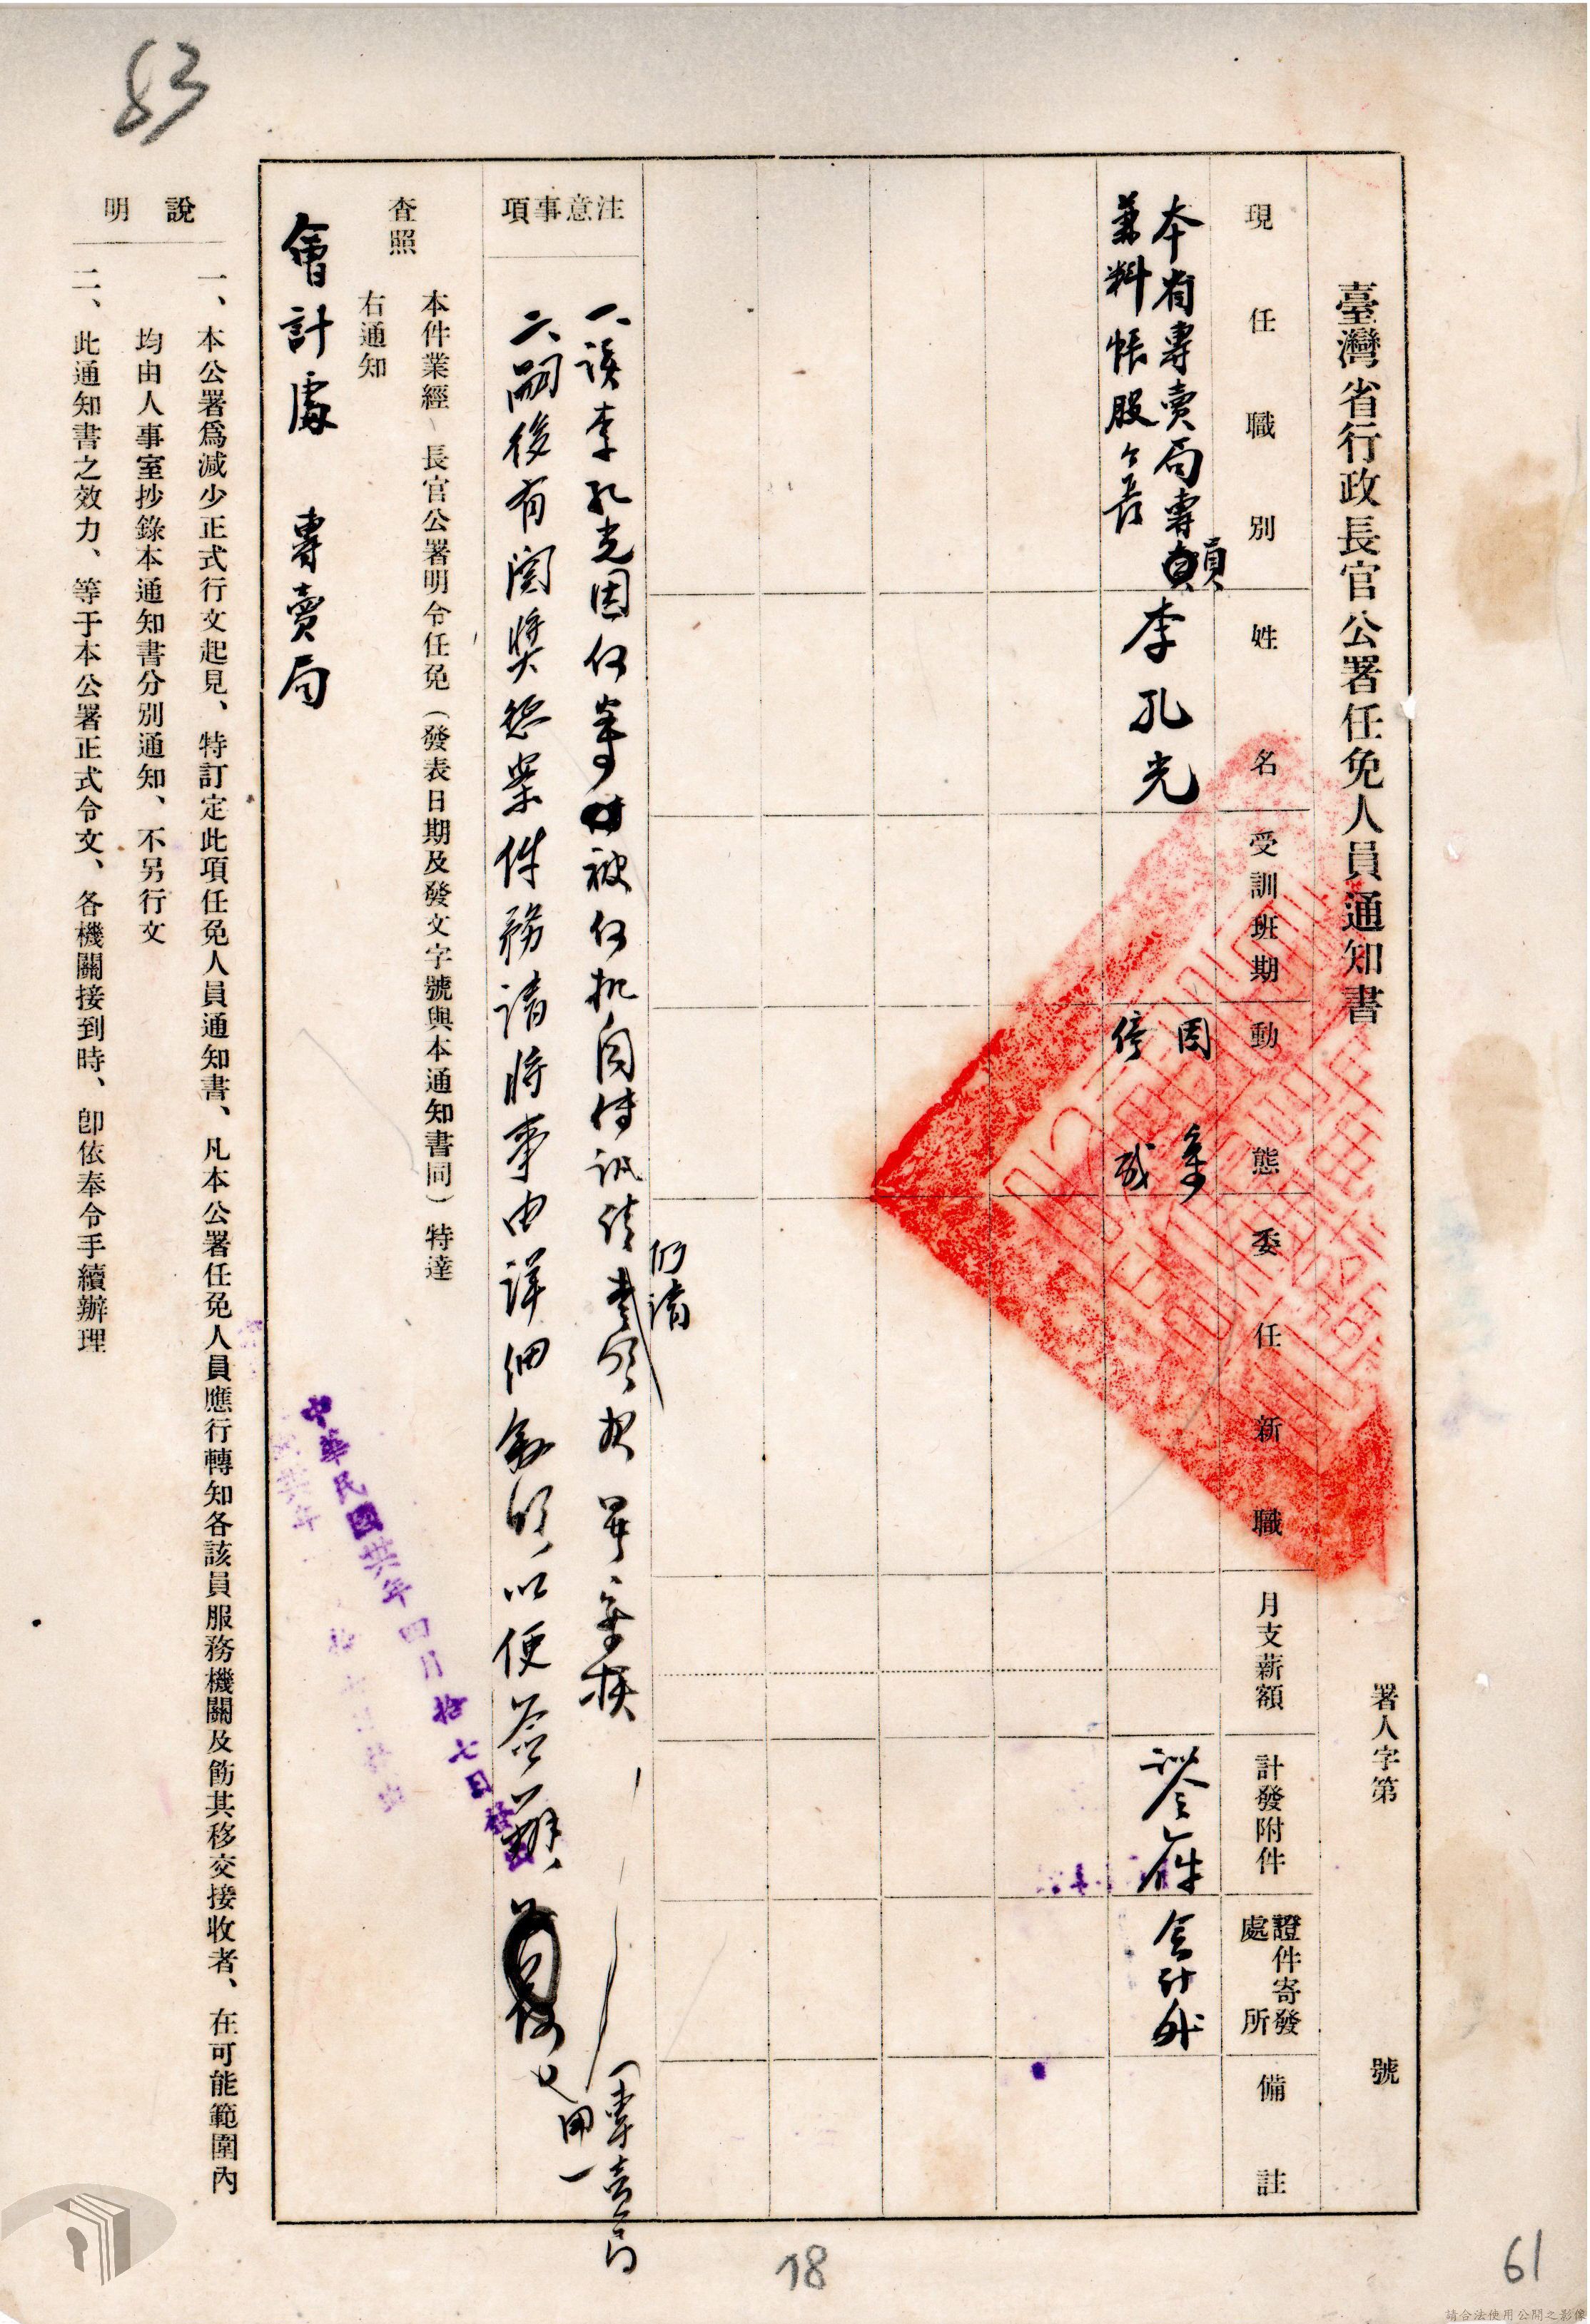 83
臺灣省行政長官公署任免人員通知書
署人字第 號
現任職別
姓名
受訓班期
動態
委任新職
月支薪額
計發附件
證件寄發處所
備註
本省專賣局專員
兼料帳股股長
李孔光
因案
停職
會計處
注意事項
一、該李孔光因何案被何机関傳訊
仍請
二、嗣後有関獎懲案件務請將事由詳細敘明以便簽辦
(專賣局
用一
本件業經 長官公署明令任免(發表日期及發文字號與本通知書同)特達
查照
右通知
會計處 專賣局
中華民國卅六年四月拾七日發出
說明
一、本公署爲減少正式行文起見、特訂定此項任免人員通知書、凡本公署任免人員應行轉知各該員服務機關及飭其移交接收者、在可能範圍內
均由人事室抄錄本通知書分別通知、不另行文
二、此通知書之效力、等于本公署正式令文、各機關接到時、卽依奉令手續辦理
78
61
請合法使用公開之影像